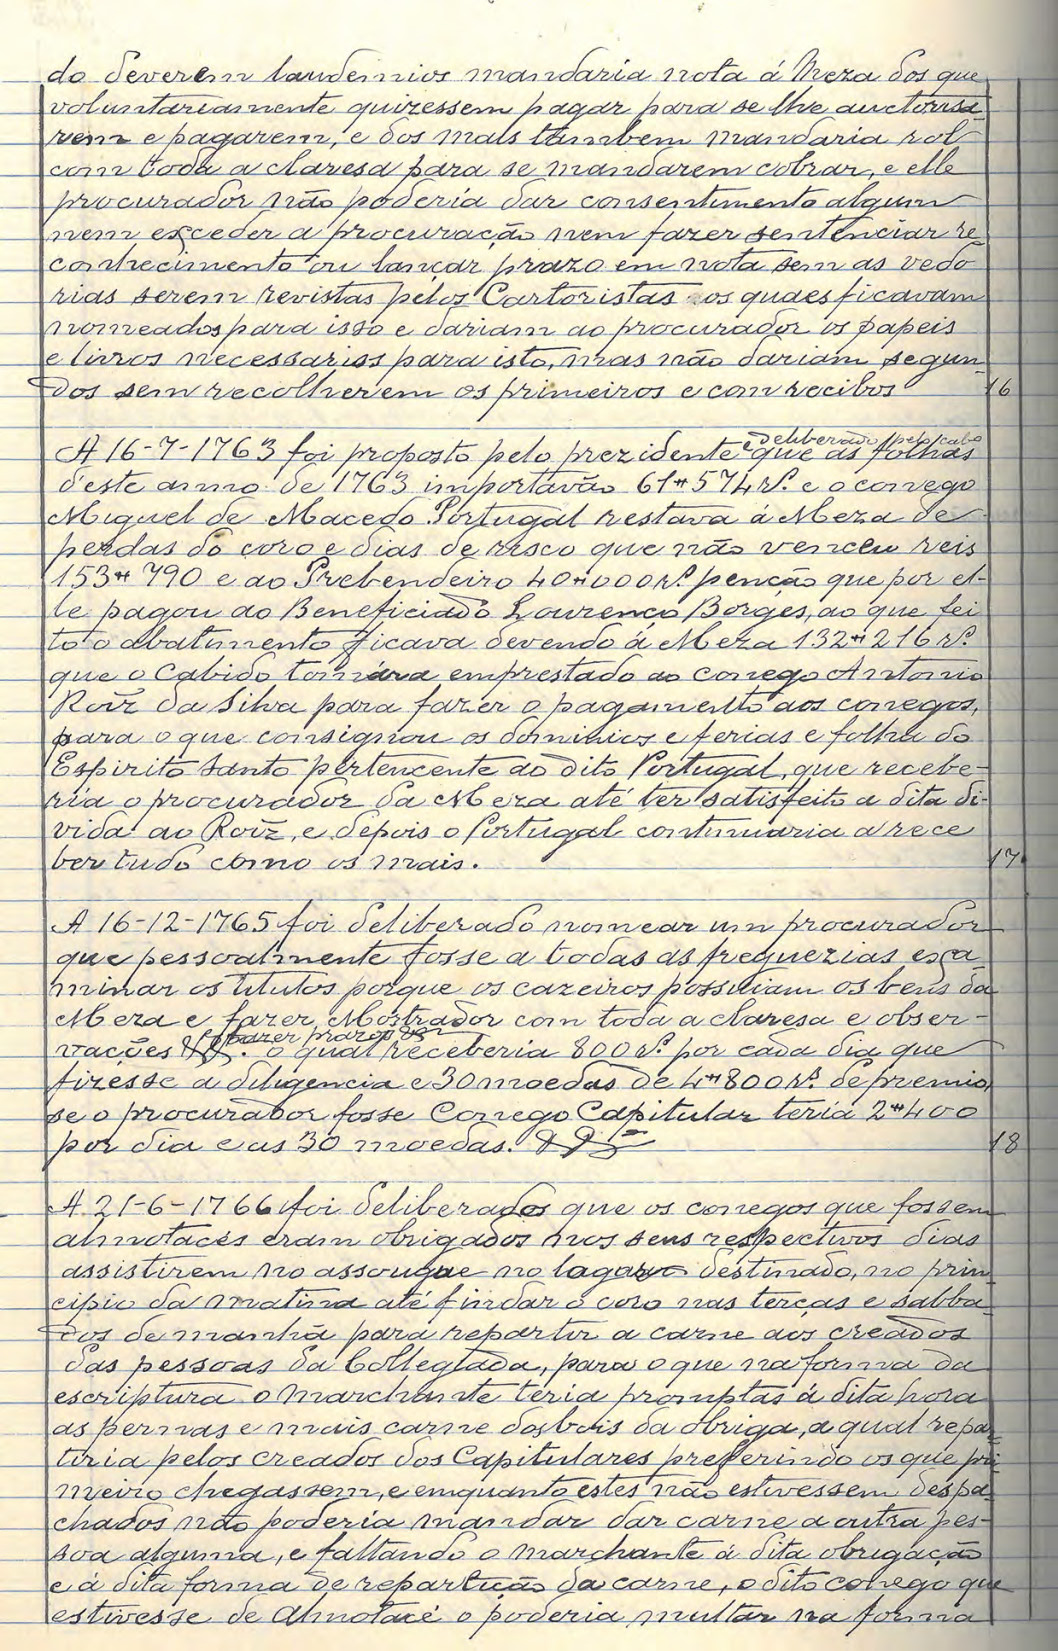 do deverem laudemios mandaria nota á Meza dos que
voluntariamente quizessem pagar para se lhe auctorisa-
rem e pagarem, e dos mais tambem mandaria rol
com toda a claresa para se mandarem cobrar, e elle
procurador não poderia dar consentimento algum
nem exceder a procuração nem fazer sentenciar re-
conhecimento ou lançar prazo em nota sem as vedo
rias serem revistas pelos Cartoristas os quaes ficavam
nomeados para isso e dariam ao procurador os papeis
e livros necessarios para isto, mas não dariam segun-
dos sem recolherem os primeiros e com recibos 16
e deliberado pelo cabo
A 16-7-1763 foi proposto pelo prezidente que as folhas
d'este anno de 1763 importavão 61#574 rs. e o conego
Miguel de Macedo Portugal restava á Meza de
perdas do coro e dias de risco que não venceu reis
153#790 e ao Prebendeiro 40#000 rs. penção que por el-
le pagou ao Beneficiado Lourenço Borges, ao que fei
to o abatimento ficava devendo á Meza 132#216 rs.
que o Cabido tomára emprestado ao conego Antonio
Roiz da Silva para fazer o pagamento aos conegos,
para o que consignou os dominios e ferias e folha do
Espirito Santo pertencente ao dito Portugal, que recebe-
ria o procurador da Meza até ter satisfeito a dita di-
vida ao Roiz, e depois o Portugal continuaria a rece
ber tudo como os mais. 17
A 16-12-1765 foi deliberado nomear um procurador
que pessoalmente fosse a todas as freguezias exa
minar os titutos porque os cazeiros possuiam os bens da
Meza e fazer Mostrador com toda a claresa e obser-
e fazer prazos
vações . o qual receberia 800 rs. por cada dia que
fizesse a diligencia e 30 moedas de 4#800 rs. de premio,
se o procurador fosse Conego Capitular teria 2#400
por dia e as 30 moedas. 18
A 21-6-1766 foi deliberado que os conegos que fossem
almotacés eram obrigados nos seus respectivos dias
assistirem no assougue no lagar destinado, no prin-
cipio da matina até findar o coro nas terças e sabba-
dos de manhã para repartir a carne aos creados
das pessoas da Collegiada, para o que na forma da
escriptura o marchante teria promptas á dita hora
as pernas e mais carne dos bois da obriga, a qual repar
tiria pelos creados dos Capitulares preferindo os que pri
meiro chegassem, e emquanto estes não estivessem despa-
chados não poderia mandar dar carne a outra pes-
soa alguma, e faltando o marchante á dita obrigação
e á dita forma de repartição da carne, o dito conego que
estivesse de Almotacé o poderia multar na forma